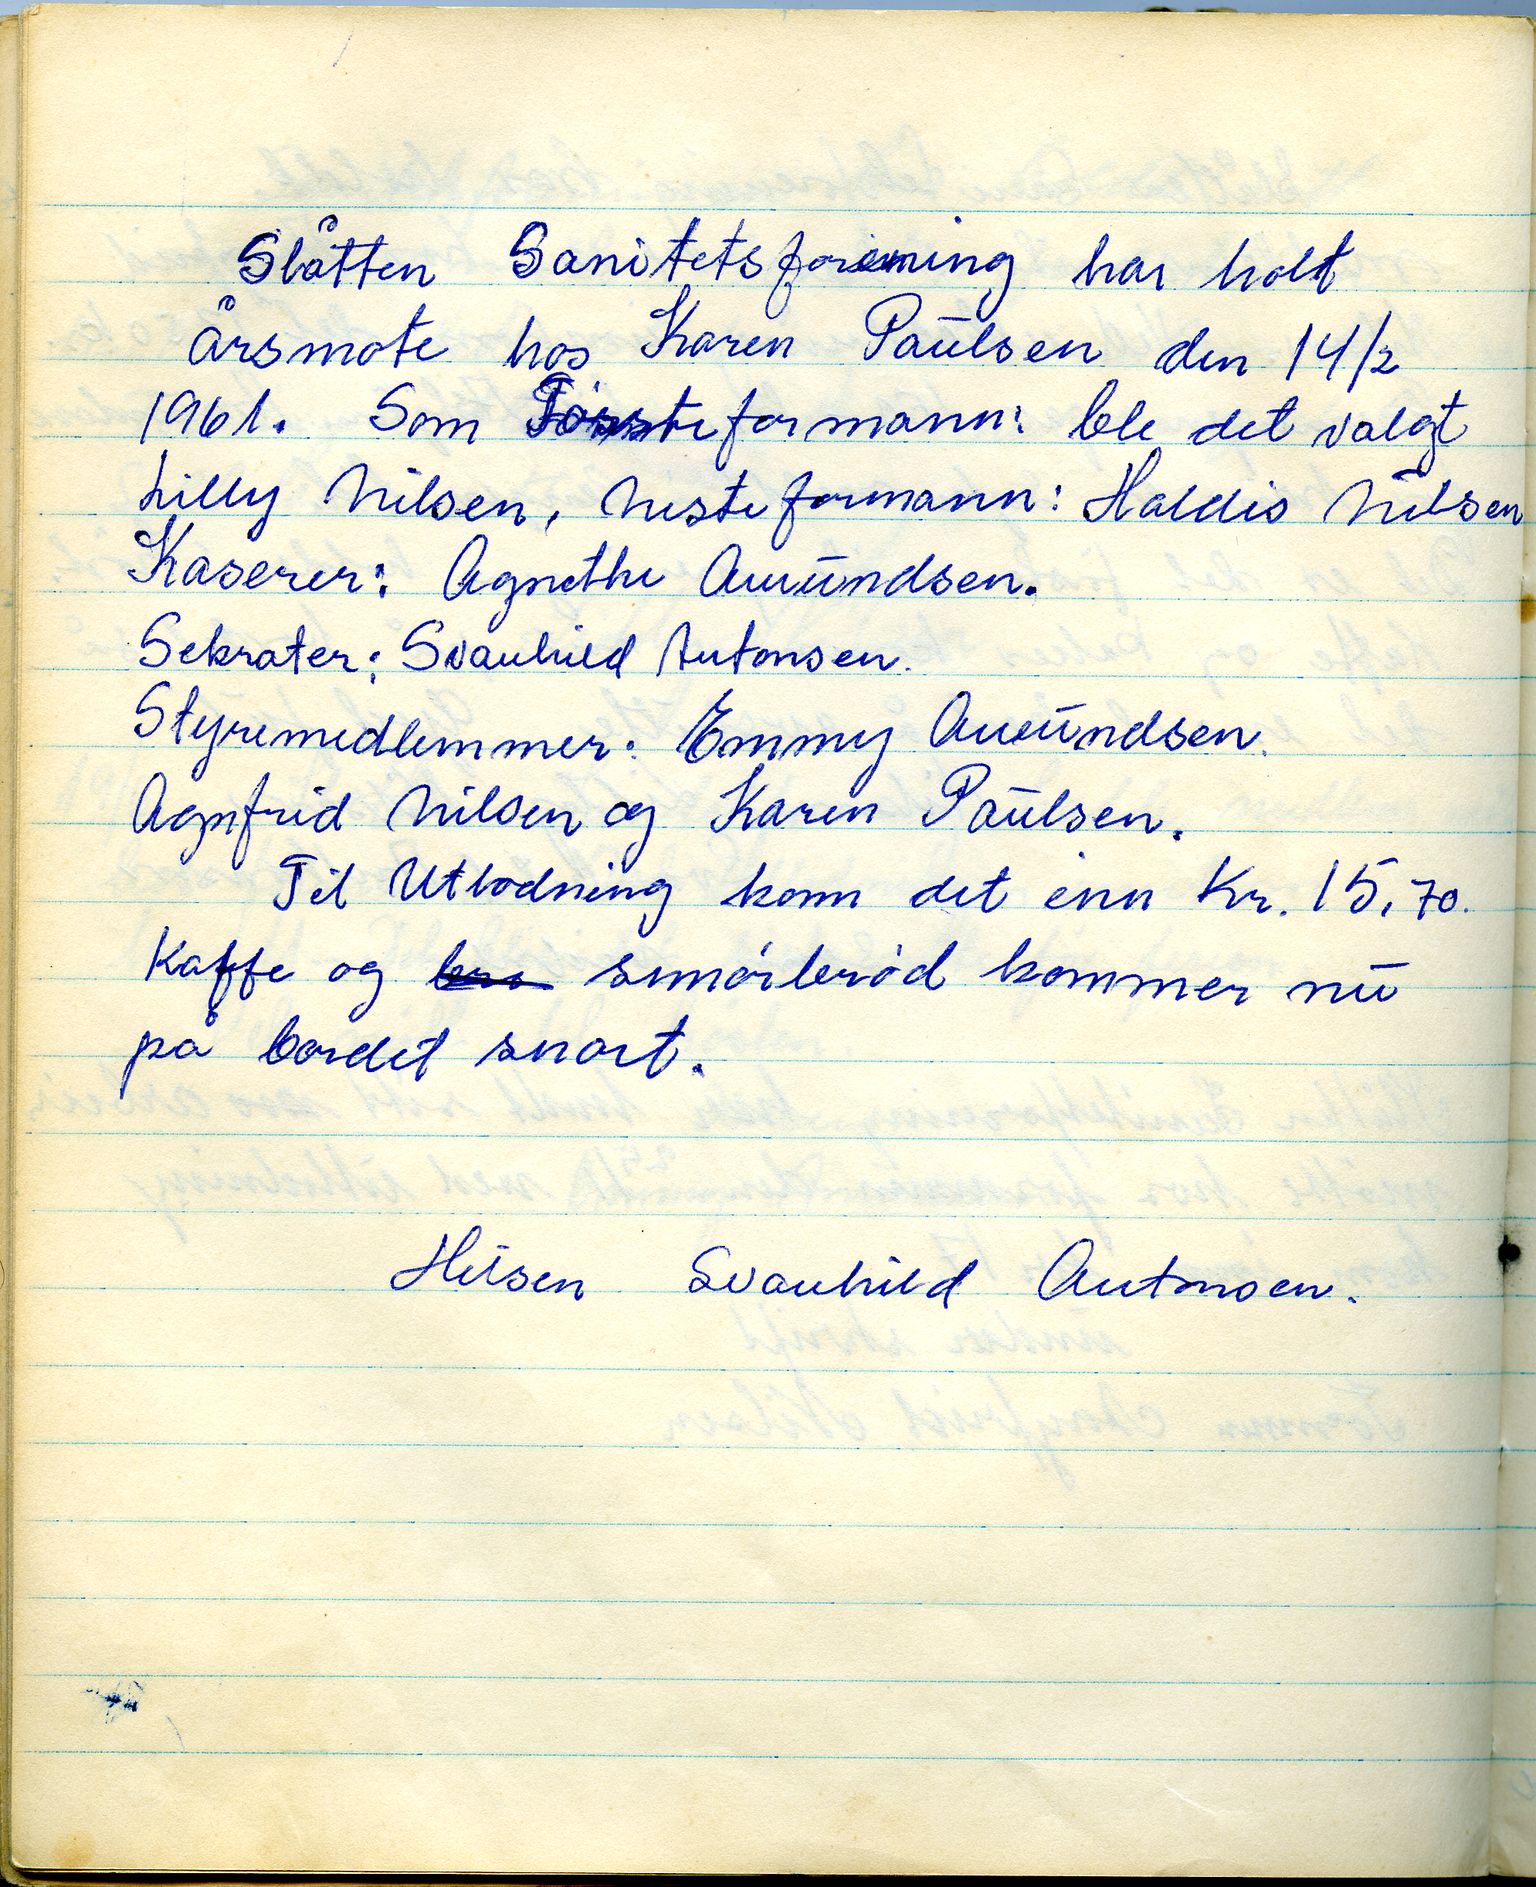 Slåtten Sanitetsforening har holt
årsmøte hos Karen Paulsen den 14/2
1961. Som Førsteformann: ble det valgt
Lilly Nilsen, Nesteformann: Haldis Nilsen
Kaserer: Agnethe Amundsen.
Sekrater: Svanhild Antonsen.
Styremedlemmer: Emmy Amundsen.
Agnfrid Nilsen og Karen Paulsen.
Til Utlodning kom det inn Kr. 15,70.
Kaffe og smørbrød kommer nu
på bordet snart.
Hilsen Svanhild Antonsen.